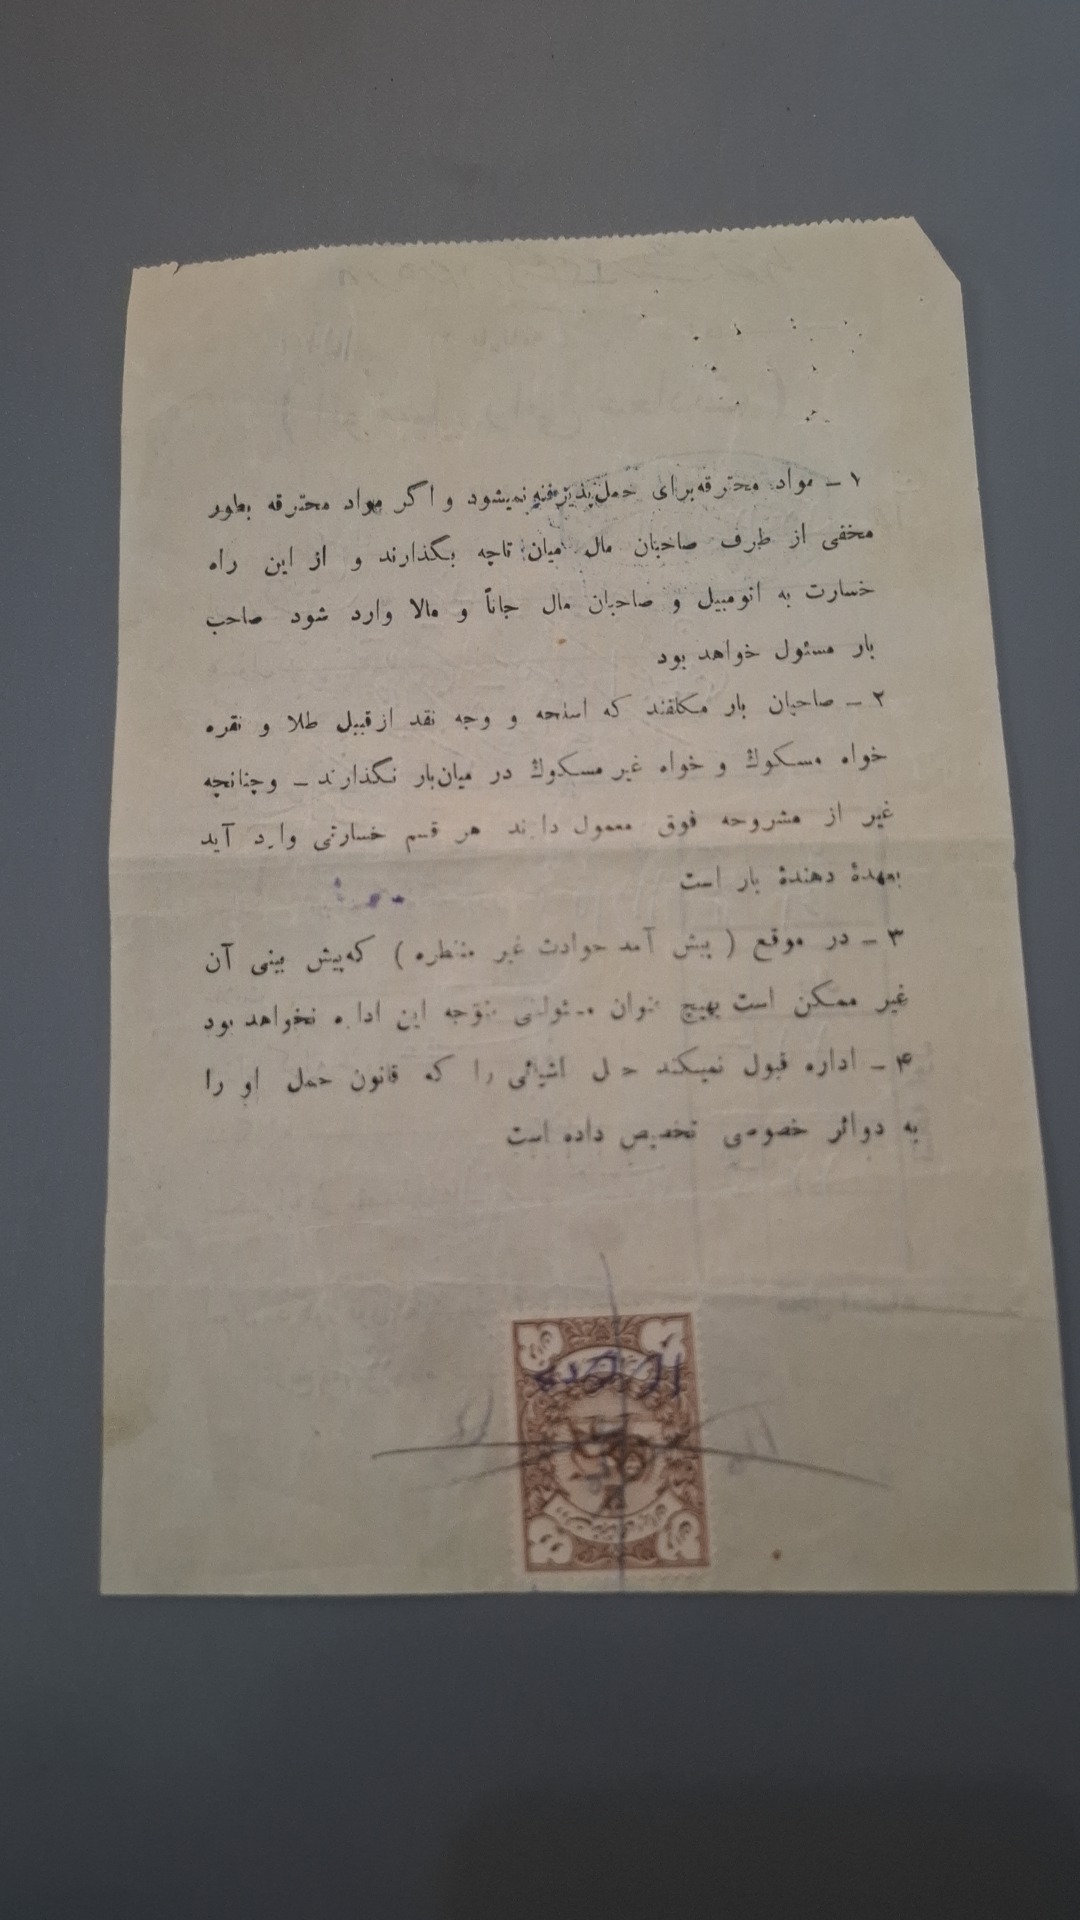 ۱ - مواد محترقه برای حمل پذیرفته نمیشود و اگر مواد محترقه بطور
مخفی از طرف صاحبان مال میان تاچه بگذارند و از این راه
خسارت به اتومبیل و صاحبان مال جاناً و مالا وارد شود صاحب
بار مسئول خواهد بود
۲ - صاحبان بار مکلفند که اسلحه و وجه نقد از قبیل طلا و نقره
خواه مسکوك و خواه غیر مسکوك در میان بار نگذارند - وچنانچه
غیر از مشروحه فوق معمول دارند هر قسم خسارتی وارد آید
بعهدهٔ دهندهٔ بار است
۳ - در موقع ( پیش آمد حوادث غیر منتظره ) که پیش بینی آن
غیر ممکن است بهیچ عنوان مسئولیتی متوجه این اداره نخواهد بود
۴ - اداره قبول نمیکند حمل اشیائی را که قانون حمل او را
به دوائر خصوصی تخصیص داده است